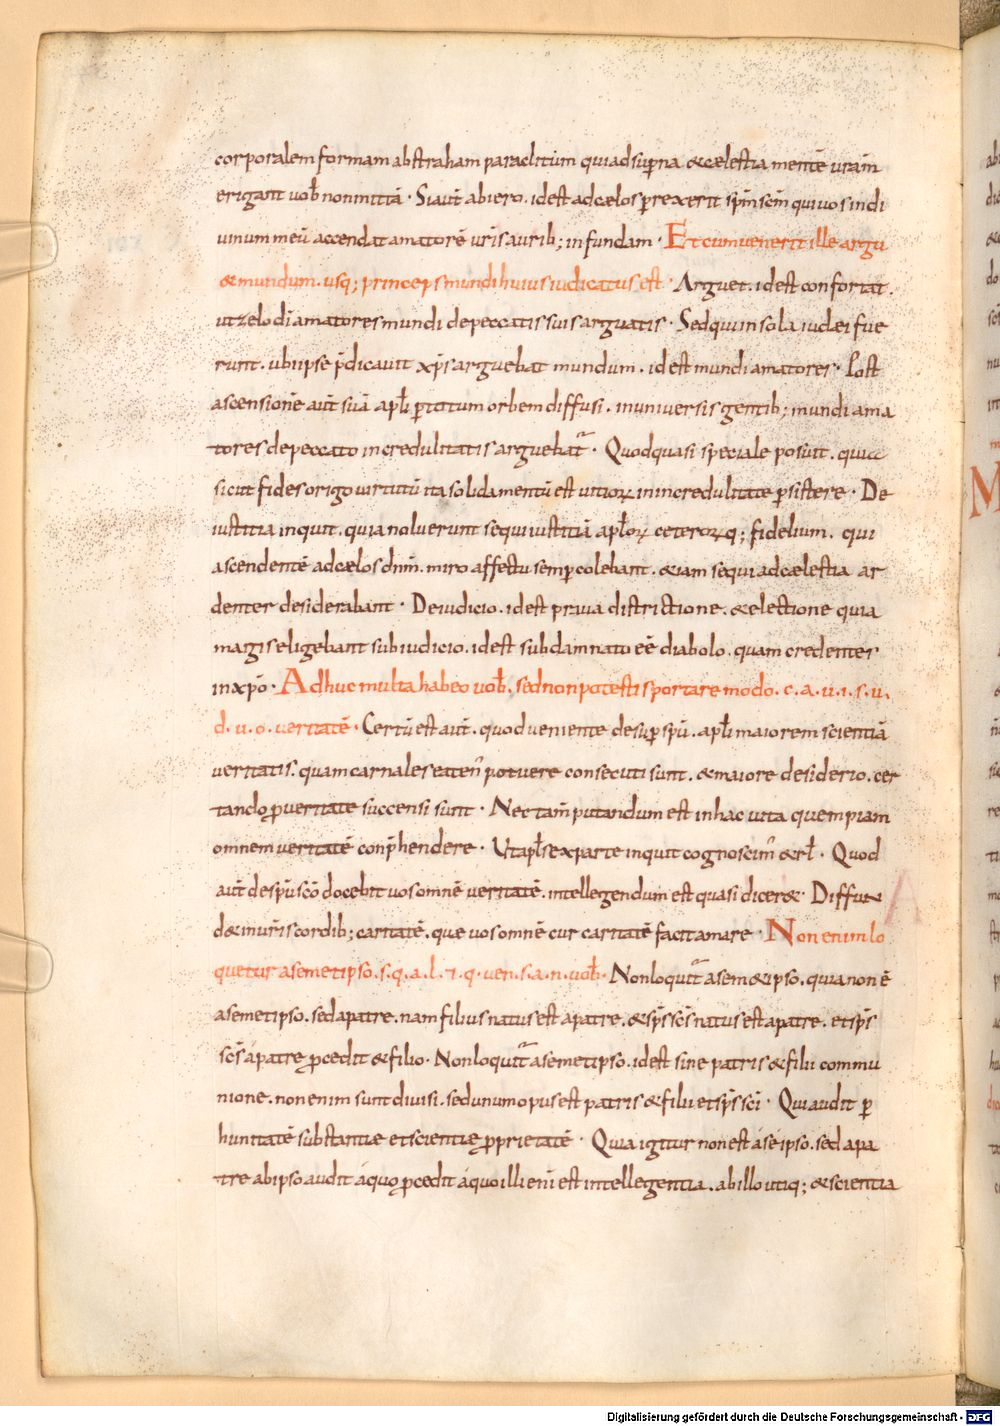 corporalem formam abstraham paraclitum qui ad sup̱na & cælestia mentē ur̄am
erigant uob̄ non mittā · Si aut̄ abiero . id est ad cælos perrexero sp̄m sc̄m qui uos in di
uinum meū accendat amatorē ur̄is aurib; infundam · Et cum uenerit ille argu
& mundum . usq; princeps mundi huius iudicatus est · Arguet . id est confortat .
ut zelo dī amatores mundi de peccatis suis arguatis · Sed qui in sola iudæi fue
runt . ubi ipse p̄dicauit xp̄s arguebat mundum . id est mundi amatores · Post
ascensionē aut̄ suā apl̄i p̱ totum orbem diffusi . in uniuersis gentib; mundi ama
tores de peccato incredulitatis arguebat̄ · Quod quasi speciale posuit . quia
sicut fides origo uirtutū ita solidamentū est uitioꝝ in incredulitate p̱sistere · De
iustitia inquit . quia noluerunt sequi iustitiā apl̄oꝝ ceteroꝝq; fidelium . qui
ascendentē ad cælos dn̄m . miro affectu semp̱ colebant . & iam sequi ad cælestia ar
denter desiderabant · De iudicio . id est praua districtione . & electione quia
magis eligebant sub iudicio . id est sub damnato eē diabolo . quam credenter
in xp̄o · Adhuc multa habeo uob̄ . sed non potestis portare modo . c . a . u . i . s . u .
d . u . o . ueritatē · Certū est aut̄ . quod ueniente desup̱ spū . apl̄i maiorem scientiā
ueritatis . quam carnales eaten̄ potuere consecuti sunt . & maiore desiderio . cer
tando ꝓ ueritate succensi sunt · Nec tam̄ putandum est in hac uita quempiam
omnem ueritatē conp̄hendere · Ut apl̄s ex parte inquit cognoscim̄ & rl̄ · Quod
aut̄ de sp̄u sc̄o docebit uos omnē ueritatē . intellegendum est quasi dicer& · Diffun
d& in ur̄is cordib; caritatē . quæ uos omnē cur caritatē facit amare · Non enim lo
quetur a semetipso . s . q . a . l . & . q . uen . s . a . n . uob̄ · Non loquit̄ a sem&ipso . quia non ē
a semetipso . sed a patre . nam filius natus est a patre . & sp̄s sc̄s natus est a patre . et sp̄s
sc̄s a patre ꝓcedit & filio · Non loquit̄ a semetipso . id est sine patris & filii commu
nione . non enim sunt diuisi . sed unum opus est patris & filii et sp̄s sc̄i · Qui audit p̱
h unitatē substantiæ et scientiæ ꝓprietatē · Quia igitur non est á se ipso . sed a pa
tre ab ipso audit á quo ꝓcedit á quo illi enī est intellegentia . ab illo utiq; & scientia
Digitalisierung gefördert durch die Deutsche Forschungsgemeinschaft - DFG